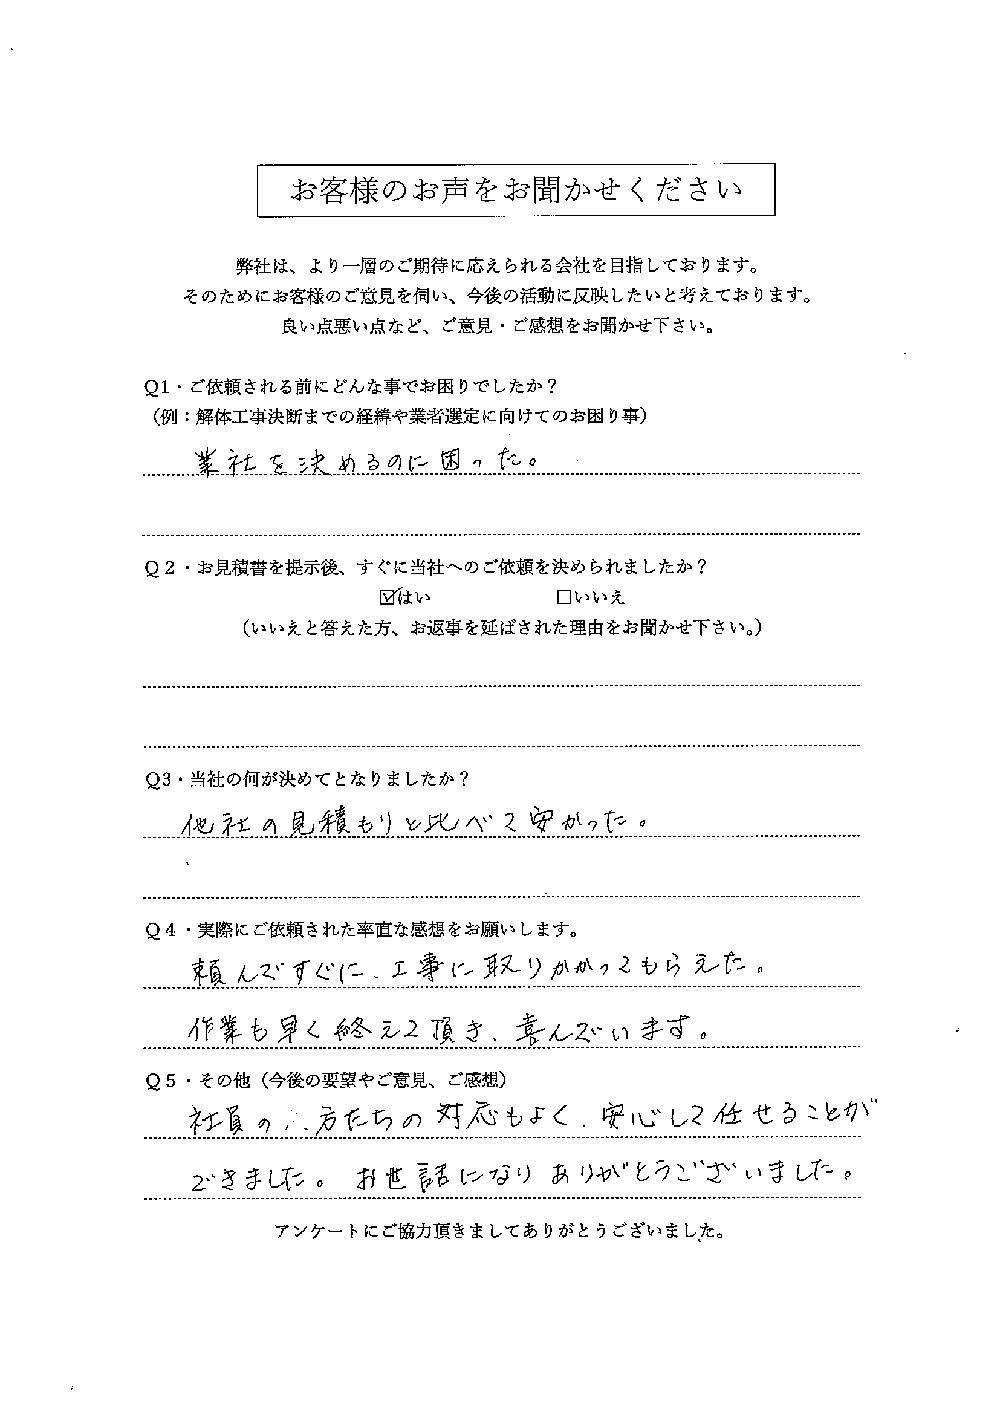 お客様のお声をお聞かせください
弊社は、より一層のご期待に応えられる会社を目指しております。
そのためにお客様のご意見を伺い、今後の活動に反映したいと考えております。
良い点悪い点など、ご意見・ご感想をお聞かせ下さい。
Q1・ご依頼される前にどんな事でお困りでしたか？
（例：解体工事決断までの経緯や業者選定に向けてのお困り事）
業社を決めるのに困った。
Q２・お見積書を提示後、すぐに当社へのご依頼を決められましたか？
☑はい □いいえ
（いいえと答えた方、お返事を延ばされた理由をお聞かせ下さい。）
Q3・当社の何が決めてとなりましたか？
他社の見積もりと比べて安かった。
Q４・実際にご依頼された率直な感想をお願いします。
頼んですぐに、工事に取りかかってもらえた。
作業も早く終えて頂き、喜んでいます。
Q５・その他（今後の要望やご意見、ご感想）
社員の方たちの対応もよく、安心して任せることが
できました。お世話になりありがとうございました。
アンケートにご協力頂きましてありがとうございました。